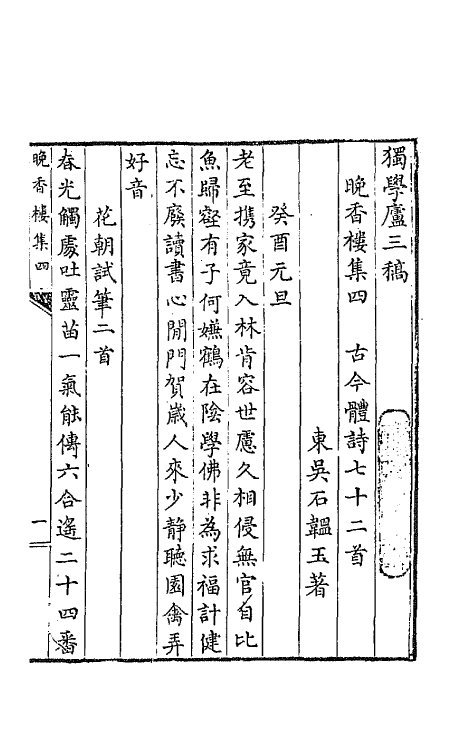 獨學廬三稿
晚香樓集四　古今體詩七十二首
東吳石韞玉著
癸酉元旦
老至攜家竟入林肯容世慮久相侵無官自比
魚歸壑有子何嫌鶴在陰學佛非為求福計健
忘不廢讀書心閒門賀歲人來少靜聽園禽弄
好音
花朝試筆二首
春光觸處吐靈苗一氣能傳六合遙二十四番
晚香樓集四
一